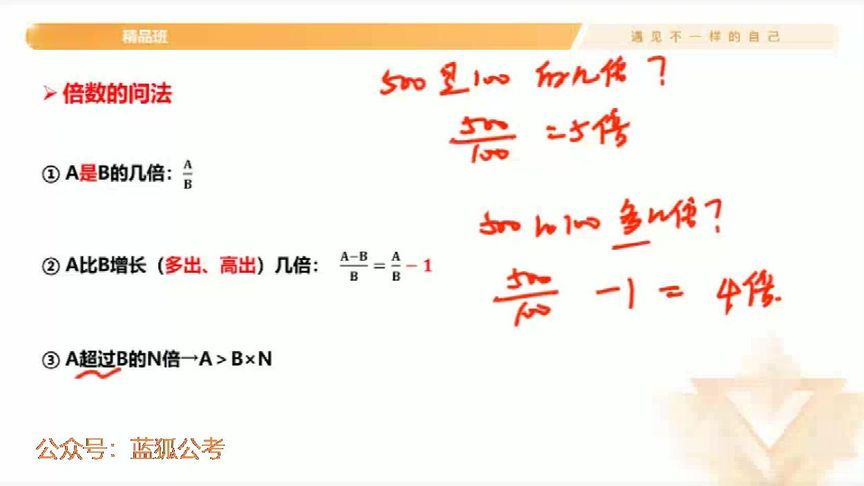 精品班
遇见不一样的自己
➢ 倍数的问法
500是100的几倍?
500/100 =5倍
① A是B的几倍: A/B
500比100多几倍?
② A比B增长（多出、高出）几倍: A−B/B = A/B − 1
500/100 −1 = 4倍.
③ A超过B的N倍→A＞B×N
公众号：蓝狐公考